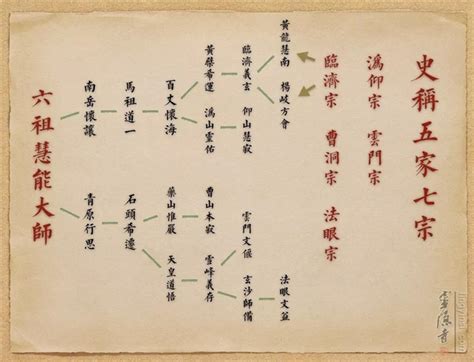 史稱五家七宗
溈仰宗
雲門宗
臨濟宗
曹洞宗
法眼宗
黃龍慧南
楊岐方會
臨濟義玄
仰山慧寂
黃檗希運
溈山靈佑
百丈懷海
馬祖道一
南岳懷讓
法眼文益
雲門文偃
玄沙師備
曹山本寂
雪峰義存
藥山惟嚴
天皇道悟
石頭希遷
青原行思
六祖慧能大師